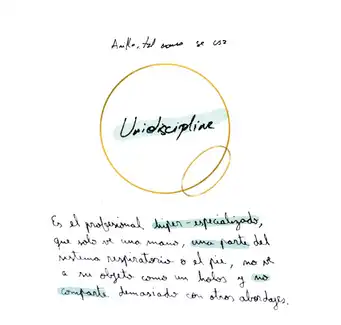 tal como se usa
Unidisciplina
Es el profesional hiper-especializado,
que solo ve una mano, una parte del
sistema respiratorio o el pie, no ve
a su objeto como un holos y no
comparte demasiado con otros abordajes.